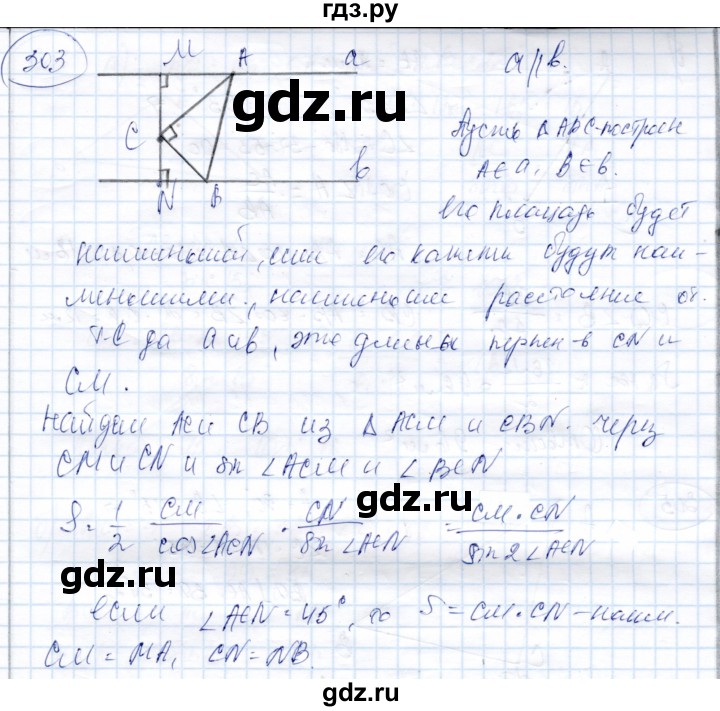 гдз.ру
303
M A a
a || b.
C
b
N B
Пусть Δ ABC-построен
A∈a, B∈b.
Его площадь будет
наименьшей, если его катеты будут наи-
меньшими, наименьшие расстояния от
т.C до a и b, это длины перпен-в CN и
CM.
Найдем AC и CB из Δ ACM и CBN. через
CM и CN и sin ∠ACM и ∠BCN
S = 1/2 CM/cos∠ACN · CN/sin∠ACN = CM·CN/sin2∠ACN
если ∠ACN = 45°, то S = CM·CN – наим.
CM = MA, CN = NB.
gdz.ru
gdz.ru
gdz.ru
gdz.ru
gdz.ru
gdz.ru